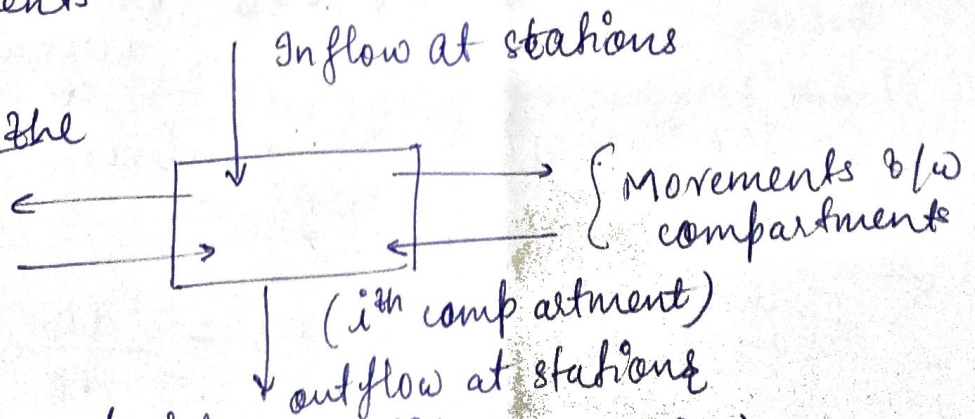 ents
Inflow at stations
the
{ Movements b/w
compartments
(ith compartment)
outflow at stations